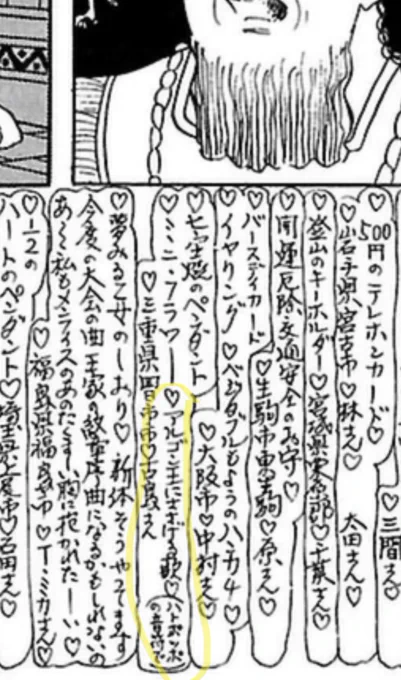 500円のテレホンカード♡三間さん♡
♡岩手県宮古市♡林さん♡ 太田さん♡
登山のキーホルダー♡宮城県 ♡千葉さん♡
開運厄除交通安全のお守♡
バースデイカード♡生駒市東生駒♡原さん♡
♡イヤリング♡ベジタブルもようのハンカチ♡
♡七宝焼のペンダント♡大阪市♡中村さん♡
♡ミニ・フラワー♡三重県四日市市♡古 さん
♡アルゴン王にささげる歌♡(ハトポッポの音符で)
♡夢みる乙女のしおり♡新体そうやってます
今度の大会の曲王家の紋章序曲になるかもしれないの
あ〜私もメンフィスのあのたくましい胸に抱かれたーい♡
♡1/2の♡福島県福島市♡T・ミカさん♡
ハートのペンダント♡埼玉県 市♡石田さん♡